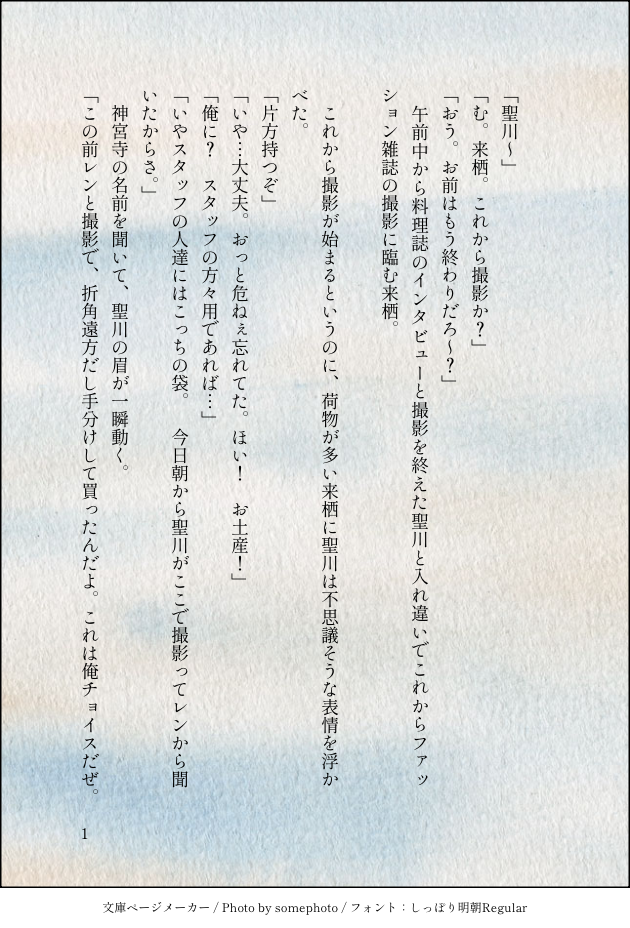 「聖川〜」
「む。来栖。これから撮影か？」
「おう。お前はもう終わりだろ〜？」
　午前中から料理誌のインタビューと撮影を終えた聖川と入れ違いでこれからファッ
ション雑誌の撮影に臨む来栖。
　これから撮影が始まるというのに、荷物が多い来栖に聖川は不思議そうな表情を浮か
べた。
「片方持つぞ」
「いや…大丈夫。おっと危ねぇ忘れてた。ほい！　お土産！」
「俺に？　スタッフの方々用であれば…」
「いやスタッフの人達にはこっちの袋。　今日朝から聖川がここで撮影ってレンから聞
いたからさ。」
　神宮寺の名前を聞いて、聖川の眉が一瞬動く。
「この前レンと撮影で、折角遠方だし手分けして買ったんだよ。これは俺チョイスだぜ。
1
文庫ページメーカー / Photo by somephoto / フォント：しっぽり明朝Regular